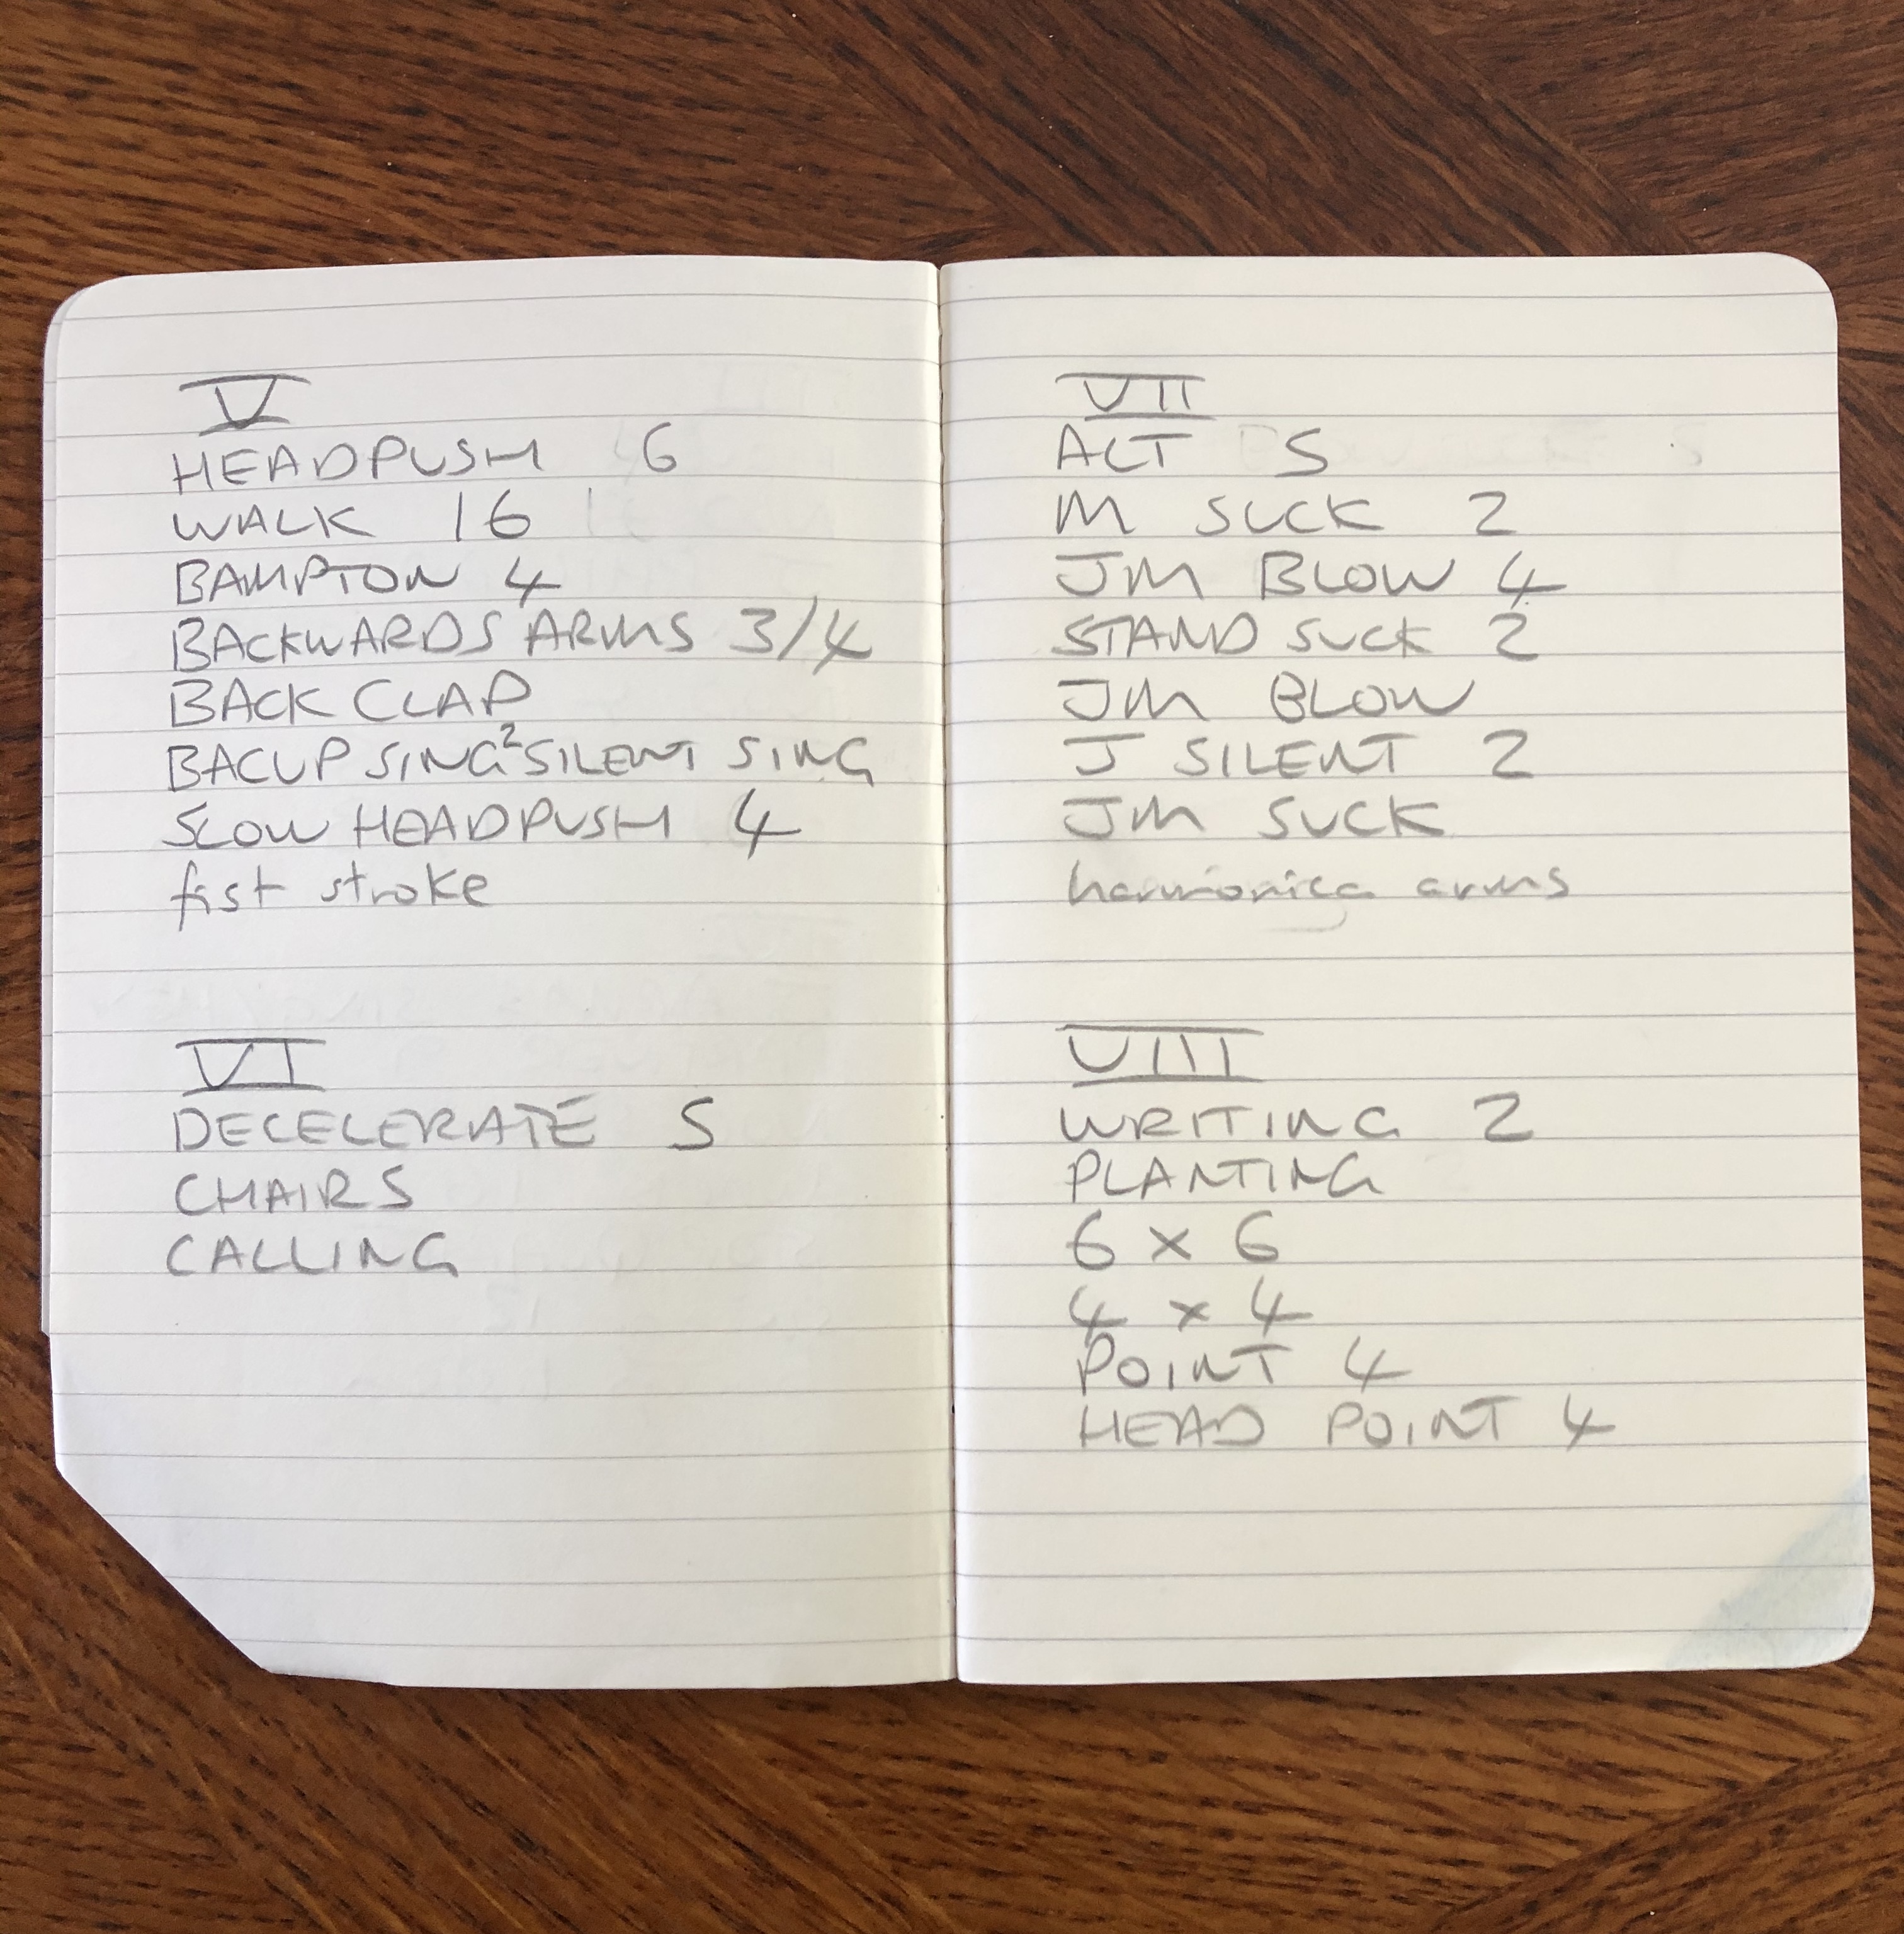 V
HEADPUSH 6
WALK 16
BAMPTON 4
BACKWARDS ARMS 3/4
BACK CLAP
BACUP SING² SILENT SING
SLOW HEADPUSH 4
fist stroke
VI
DECELERATE 5
CHAIRS
CALLING
VII
ALT 5
M SUCK 2
JM BLOW 4
STAND SUCK 2
JM BLOW
J SILENT 2
JM SUCK
harmonica arms
VIII
WRITING 2
PLANTING
6 x 6
4 x 4
POINT 4
HEAD POINT 4